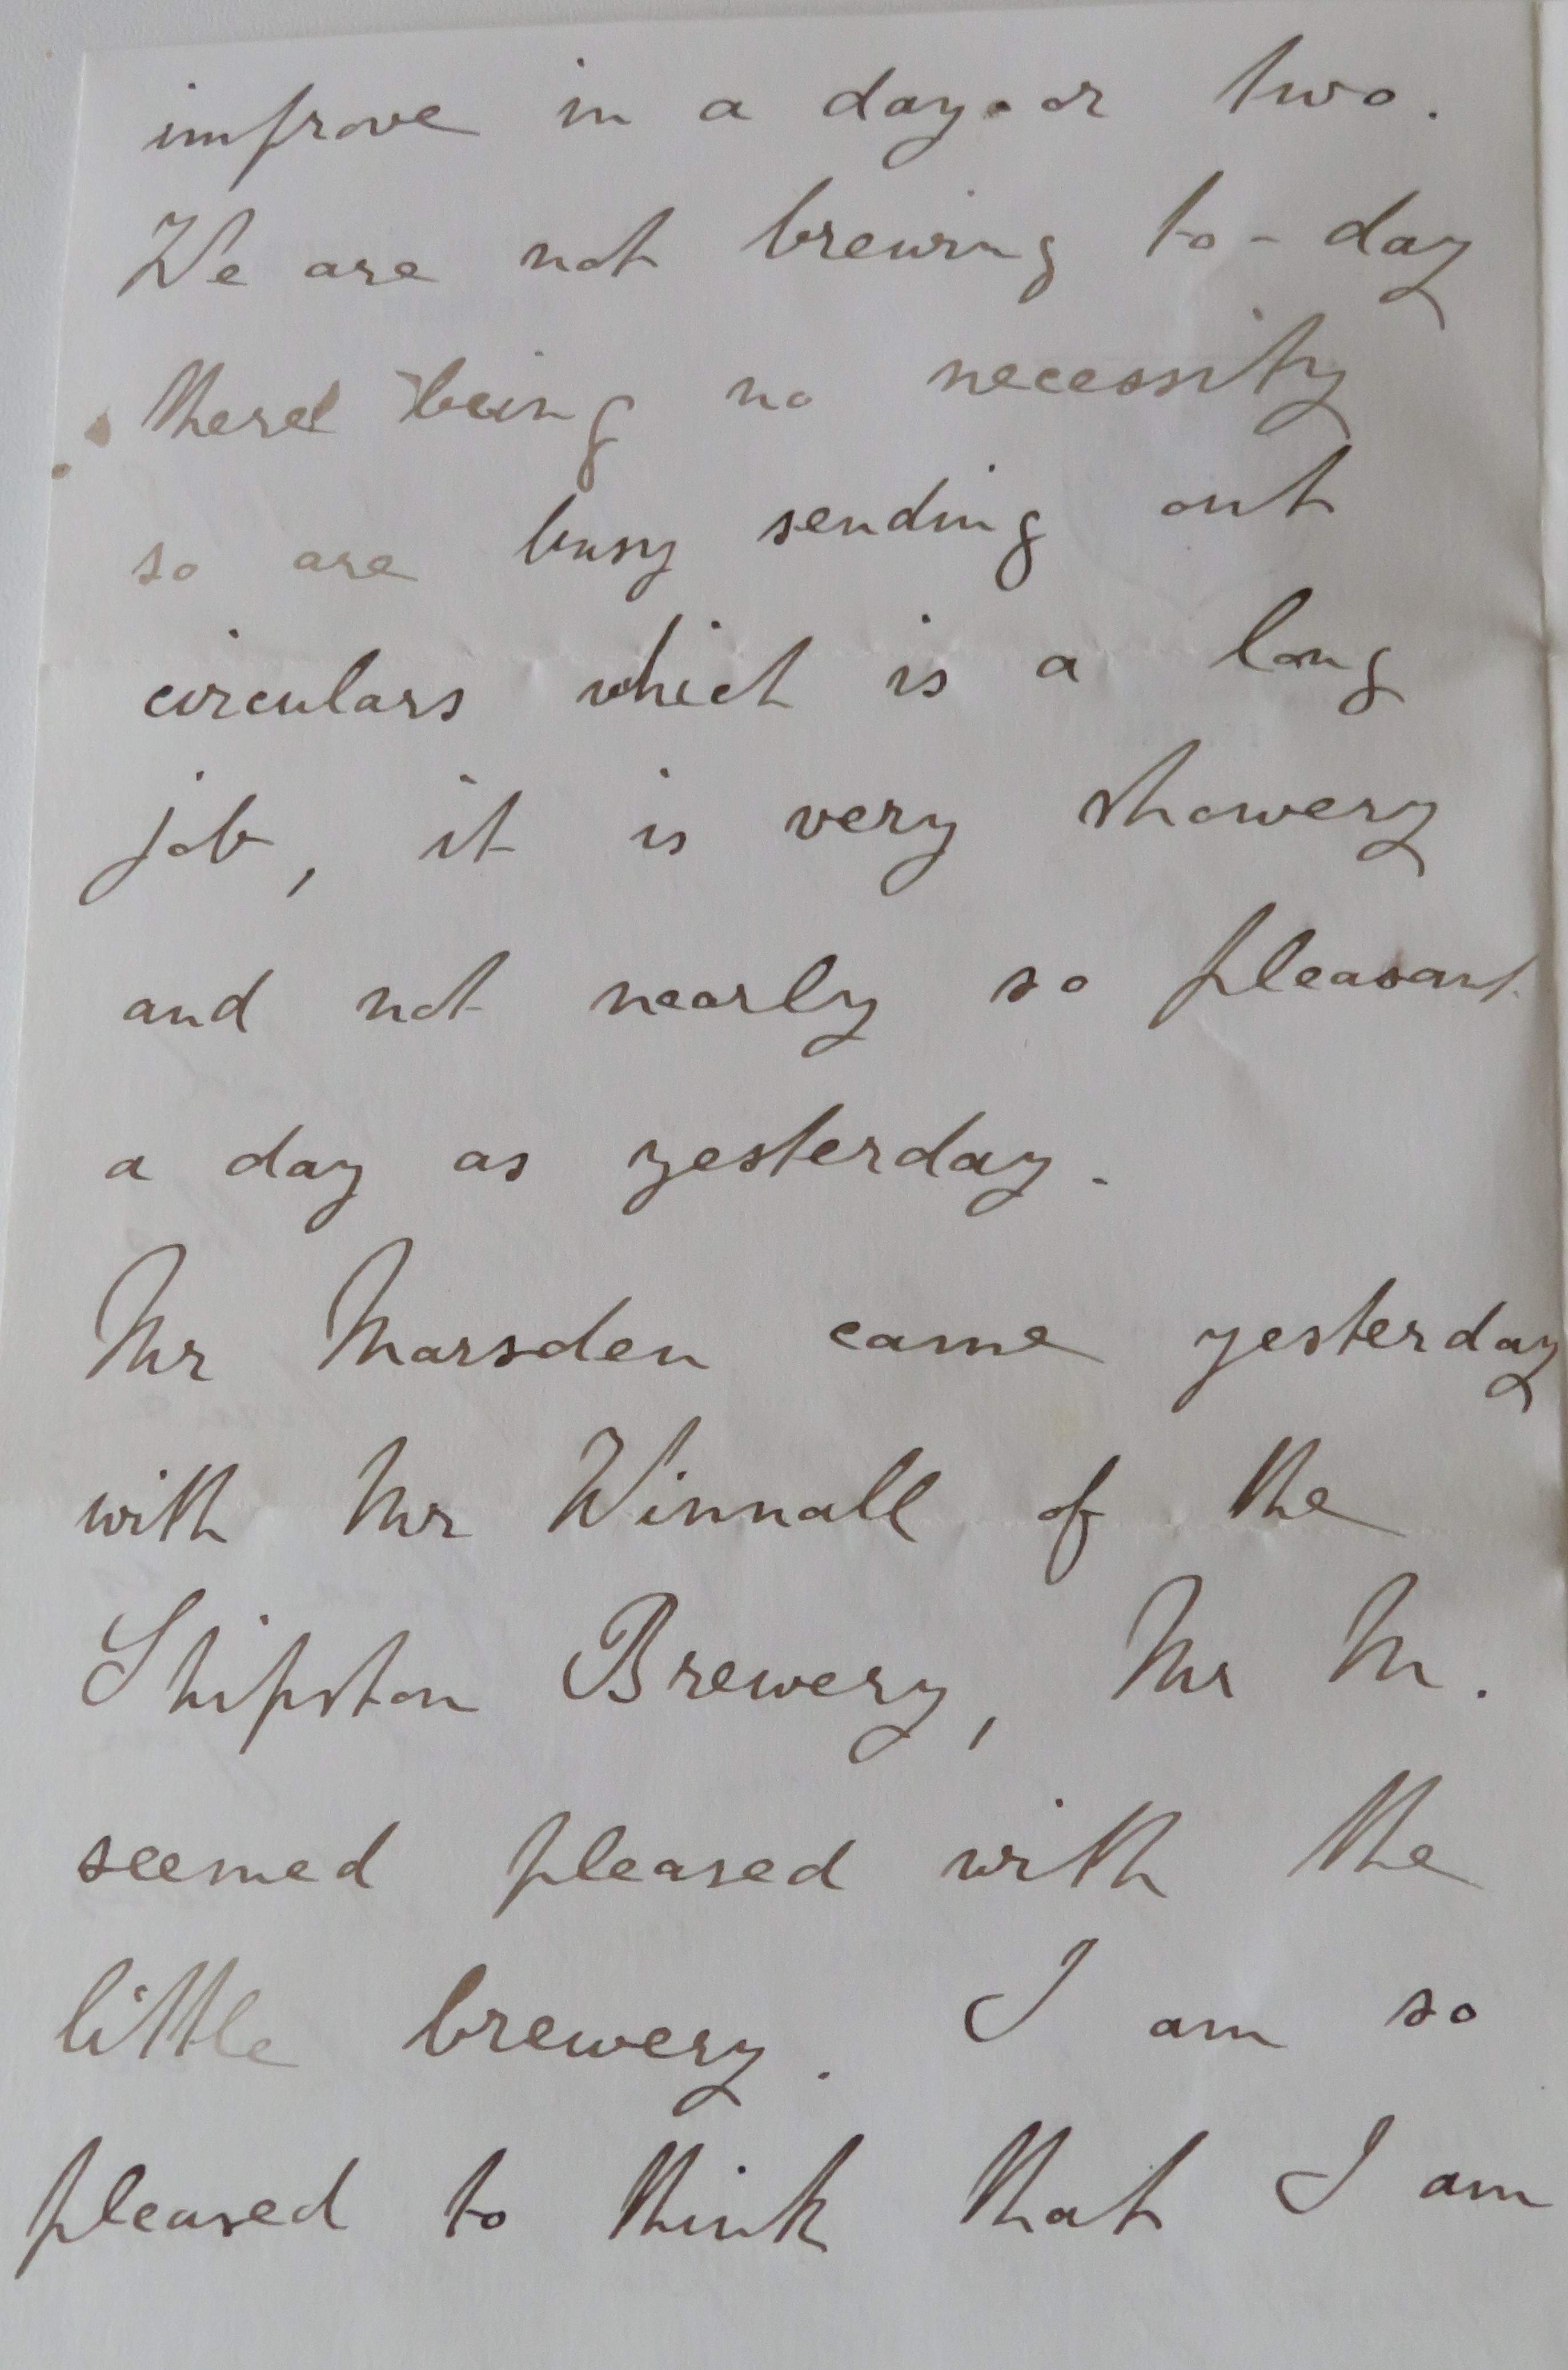 improve in a day or two.
We are not brewing to-day
there being no necessity
so are busy sending out
circulars which is a long
job, it is very showery
and not nearly so pleasant
a day as yesterday.
Mr Marsden came yesterday
with Mr Winnall of the
Shipston Brewery, Mr M.
seemed pleased with the
little brewery. I am so
pleased to think that I am